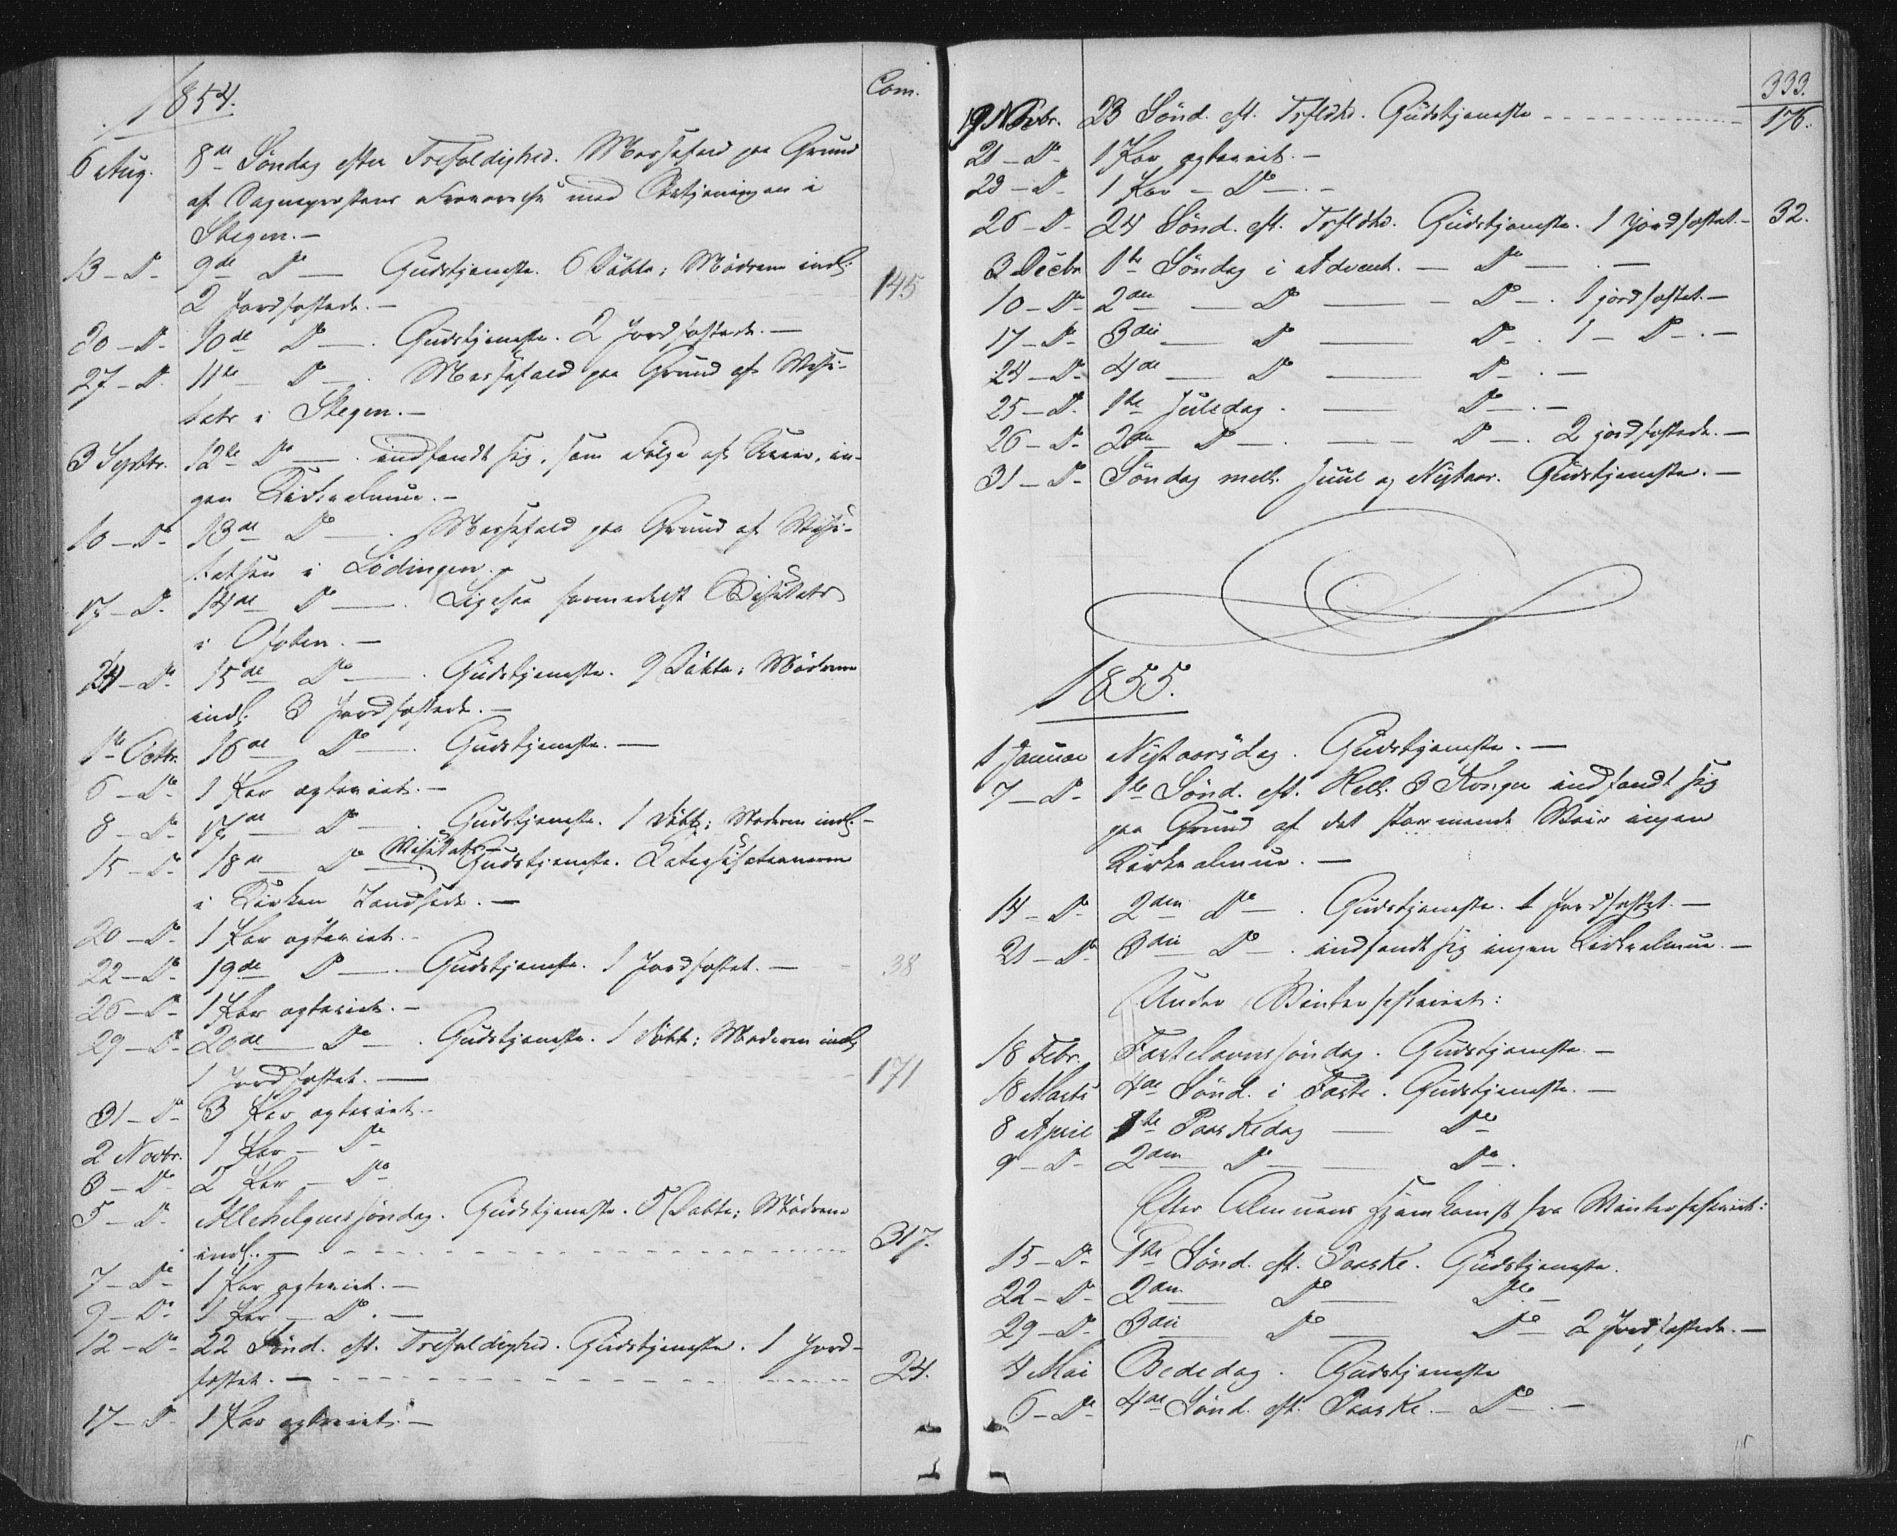 1854.
Com.
6 Aug. 8de Søndag efter Trefoldighed. Messefald paa Grund
af Sognepræstens Fraværelse med Betjeningen i
Stegen. –
13 – Do 9de Do – Gudstjeneste. 6 Døbte; Mødrene indl. 145
2 Jordfæstede. –
20 – Do 10de Do – . Gudstjeneste. 2 Jordfæstede. –
27 – Do 11te Do – . Messefald paa Grund af Visi-
tats i Stegen. –
3 Septbr. 12te Do – . indfandt sig, som Følge af Uveir, in-
gen Kirkealmue. –
10 – Do 13de Do – . Messefald paa Grund af Visi-
tatsen i Lødingen. –
17 – Do 14de Do – . Ligesaa formedelst Visitats
i Ofoten. –
24 – Do 15de Do – . Gudstjeneste. 9 Døbte; Mødrene
indl. 3 Jordfæstede. –
1te Octbr. 16de Do – . Gudstjeneste. –
6 – Do 1 Par ægteviet. –
8 – Do 17de Do – . Gudstjeneste. 1 Døbt; Moderen indl. –
15 – Do 18de Do – Visitats- Gudstjeneste. Katechisationerne
i Kirken
20 – Do 1 Par ægteviet. –
22 – Do 19de Do – . Gudstjeneste. 1 Jordfæstet. – 38
26 – Do 1 Par ægteviet. –
29 – Do 20de Do – . Gudstjeneste. 1 Døbt; Moderen indl.
1 Jordfæstet. – 171
31 – Do 3 Par ægteviet. –
2 Novbr. 1 Par – Do
3 – Do 2 Par – Do
5 – Do Allehelgenssøndag. Gudstjeneste. 5 Døbte; Mødrene
indl. – 317.
7 – Do 1 Par ægteviet. –
9 – Do 1 Par – Do. –
12 – Do 22 Sønd. eft. Trefoldighed. Gudstjeneste. 1 Jord-
fæstet. – 24.
17 – Do 1 Par ægteviet. –
333.
19 Novbr. 23 Sønd. eft. Trfldhd. Gudstjeneste 176.
21 – Do 1 Par ægteviet. –
23 – Do 1 Par – Do – . –
26 – Do 24 Sønd. eft. Trfldhd. Gudstjeneste. 1 jordfæstet. – 32.
3 Decbr. 1te Søndag i Advent. – Do – . –
10 – Do 2den – Do – Do – . 1 jordfæstet. –
17 – Do 3die – Do – Do – . 1 – Do – . –
24 – Do 4de – Do – Do – . –
25 – Do 1te Juledag. – Do – . –
26 – Do 2den Do – . – Do – . 2 jordfæstede. –
31 – Do Søndag mell. Juul og Nytaar. Gudstjeneste. –
1855.
1 Januar Nytaarsdag. Gudstjeneste. –
7 – Do 1te Sønd. eft. Hell. 3 Konger indfandt sig
paa Grund af det stormende Veir ingen
Kirkealmue. –
14 – Do 2den Do – . Gudstjeneste. 1 Jordfæstet. –
21 – Do 3die Do – . indfandt sig ingen Kirkealmue. –
Under Vinterfiskeriet:
18 Febr. Fastelavnssøndag. Gudstjeneste. –
18 Marts 4de Sønd. i Faste. Gudstjeneste. –
8 April 1te Paaskedag – Do
9 – Do 2den Do – – Do.
Efter Almuens Hjemkomst fra Vinterfiskeriet:
15 – Do 1te Sønd. eft. Paaske. Gudstjeneste.
22 – Do 2den – Do – Do –
29 – Do 3die – Do – Do – 2 Jordfæstede. –
4 Mai Bededag. Gudstjeneste
6 – Do 4de Sønd. eft. Paaske. – Do – . –